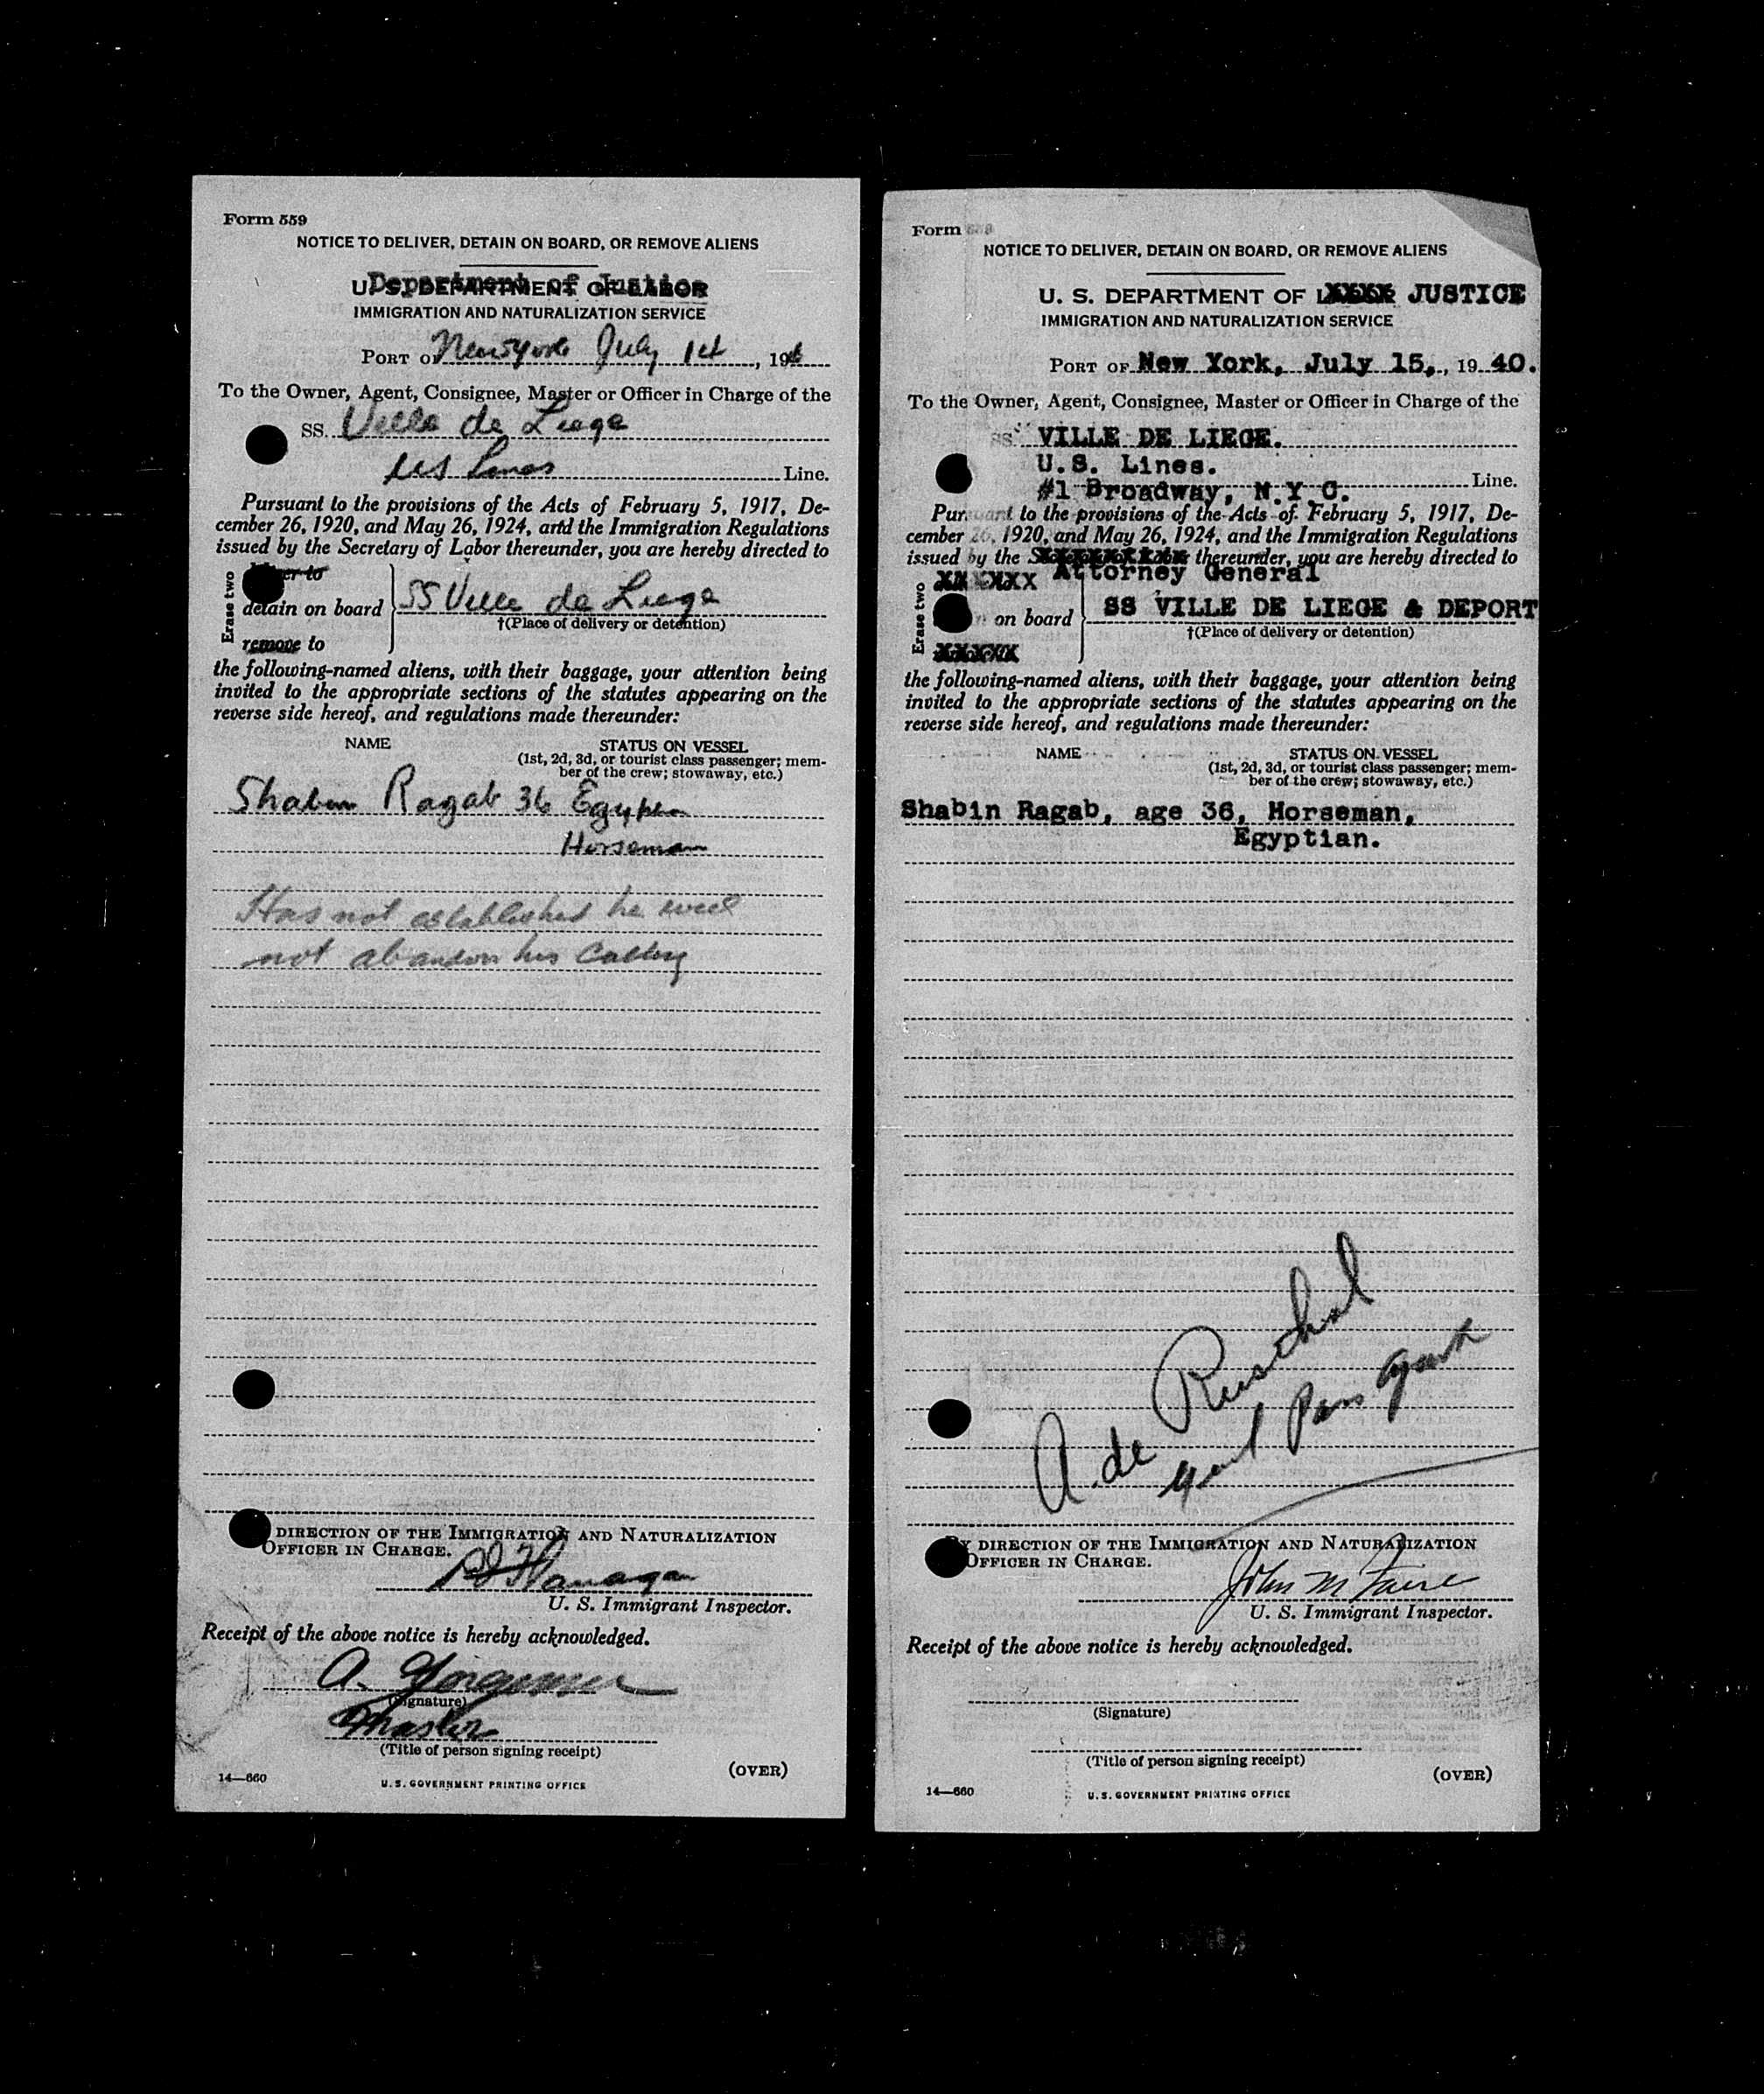 Form 559
NOTICE TO DELIVER, DETAIN ON BOARD, OR REMOVE ALIENS
Department of Justice
U. S. DEPARTMENT OF LABOR
IMMIGRATION AND NATURALIZATION SERVICE
PORT OF New York July 14, 19
To the Owner, Agent, Consignee, Master or Officer in Charge of the
SS. Ville de Liege
US Lines Line.
Pursuant to the provisions of the Acts of February 5, 1917, De-
cember 26, 1920, and May 26, 1924, and the Immigration Regulations
issued by the Secretary of Labor thereunder, you are hereby directed to
Erase two
detain on board
remove to
SS Ville de Liege
†(Place of delivery or detention)
the following-named aliens, with their baggage, your attention being
invited to the appropriate sections of the statutes appearing on the
reverse side hereof, and regulations made thereunder:
NAME STATUS ON VESSEL
(1st, 2d, 3d, or tourist class passenger; mem-
ber of the crew; stowaway, etc.)
Shabin Ragab 36 Egyptian
Horseman
Has not established he will
not abandon his calling
DIRECTION OF THE IMMIGRATION AND NATURALIZATION
OFFICER IN CHARGE.
Flanagan
U. S. Immigrant Inspector.
Receipt of the above notice is hereby acknowledged.
A.
(Signature)
Master
(Title of person signing receipt)
(OVER)
14—660
U. S. GOVERNMENT PRINTING OFFICE
Form 559
NOTICE TO DELIVER, DETAIN ON BOARD, OR REMOVE ALIENS
U. S. DEPARTMENT OF LXXXX JUSTICE
IMMIGRATION AND NATURALIZATION SERVICE
PORT OF New York, July 15,, 19 40.
To the Owner, Agent, Consignee, Master or Officer in Charge of the
SS VILLE DE LIEGE.
U.S. Lines.
#1 Broadway, N.Y.C. Line.
Pursuant to the provisions of the Acts of February 5, 1917, De-
cember 26, 1920, and May 26, 1924, and the Immigration Regulations
issued by the thereunder, you are hereby directed to
Attorney General
Erase two
on board
SS VILLE DE LIEGE & DEPORT
†(Place of delivery or detention)
the following-named aliens, with their baggage, your attention being
invited to the appropriate sections of the statutes appearing on the
reverse side hereof, and regulations made thereunder:
NAME STATUS ON VESSEL
(1st, 2d, 3d, or tourist class passenger; mem-
ber of the crew; stowaway, etc.)
Shabin Ragab, age 36, Horseman,
Egyptian.
A. de
Pass
BY DIRECTION OF THE IMMIGRATION AND NATURALIZATION
OFFICER IN CHARGE.
John M
U. S. Immigrant Inspector.
Receipt of the above notice is hereby acknowledged.
(Signature)
(Title of person signing receipt)
(OVER)
14—660
U. S. GOVERNMENT PRINTING OFFICE